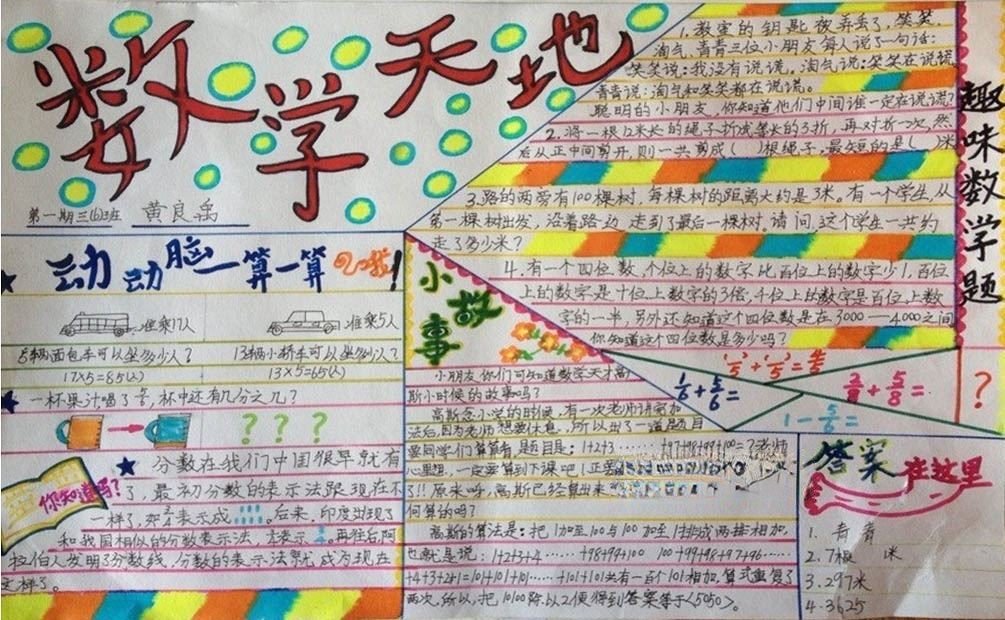 数学天地
第一期三(6)班 黄良禹
1.教室的钥匙被弄丢了,笑笑、
淘气、青青三位小朋友每人说了一句话:
笑笑说:我没有说谎。淘气说:笑笑在说谎。
青青说:淘气和笑笑都在说谎。
聪明的小朋友,你知道他们中间谁一定在说谎?
2.将一根12米长的绳子折成等长的3折,再对折一次,然
后从正中间剪开,则一共剪成( )根绳子,最短的是( )米
3.路的两旁有100棵树,每棵树的距离大约是3米。有一个学生,从
第一棵树出发,沿着路边走到了最后一棵树。请问,这个学生一共约
走了多少米?
4.有一个四位数,个位上的数字比百位上的数字少1,百位
上的数字是十位上数字的3倍,千位上的数字是百位上数
字的一半,另外还知道这个四位数是在3000—4000之间
你知道这个四位数是多少吗?
趣味数学题
动动脑一算一算吧!
准乘17人 准乘5人
5辆面包车可以坐多少人? 13辆小轿车可以坐多少人?
17×5=85(人) 13×5=65(人)
一杯果汁喝了 ,杯中还有几分之几?
? ? ?
你知道吗?
分数在我们中国很早就有
了,最初分数的表示法跟现在不
一样了, 表示成 。后来,印度出现了
和我国相似的分数表示法, 表示 。再往后,阿
拉伯人发明了分数线,分数的表示法就成为现在
这样了。
小故事
小朋友你们可知道数学天才高
斯小时候的故事吗?
高斯念小学的时候,有一次老师讲完加
法后,因为老师想要休息,所以出了一道题目
要同学们算算看,题目是:1+2+3……+97+98+99+100=?老师
心里想,一定要算到下课吧!正要
了!!原来呀,高斯已经算出来
何算的吗?
高斯的算法是:把1加至100与100加至1排成两排相加,
也就是说:1+2+3+4……+98+99+100 100+99+98+97+96……
+4+3+2+1=101+101+101……+101+101共有一百个101相加,算式重复了
两次,所以,把10100除以2便得到答案等于<5050>。
1/5+ /5= /5
1/6+5/6=
/8+5/8=
1-5/6=
?
答案在这里
1.青青
2.7根 米
3.297米
4.3625